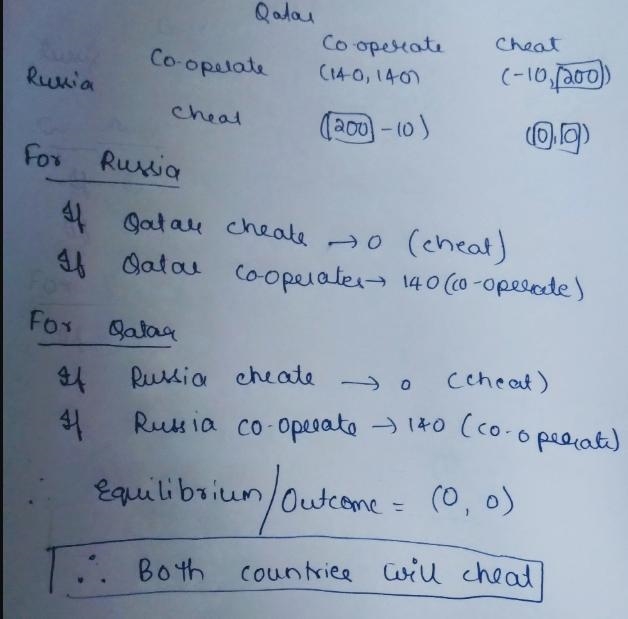 Qatar
Co-operate Cheat
Russia Co-operate (140, 140) (-10, 200)
Cheat (200 -10) (0, 0)
For Russia
If Qatar cheate → 0 (cheat)
If Qatar Co-operates → 140 (co-operate)
For Qatar
If Russia cheate → 0 (cheat)
If Russia co-operate → 140 (co-operate)
∴ Equilibrium/Outcome = (0, 0)
∴ Both countries will cheat